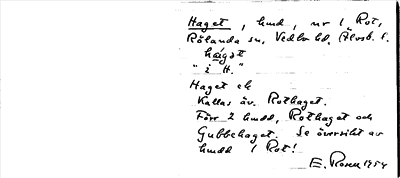 Haget, hmd, nr 1 Rot,
Rölanda sn, Vedbo hd, Älvsb. l.
hágət
"i H."
Haget ek
Kallas äv. Rothaget.
Förr 2 hmdd, Rothaget och
Gubbehaget. Se översikt av
hmdd 1 Rot!
E. Rosell 1954